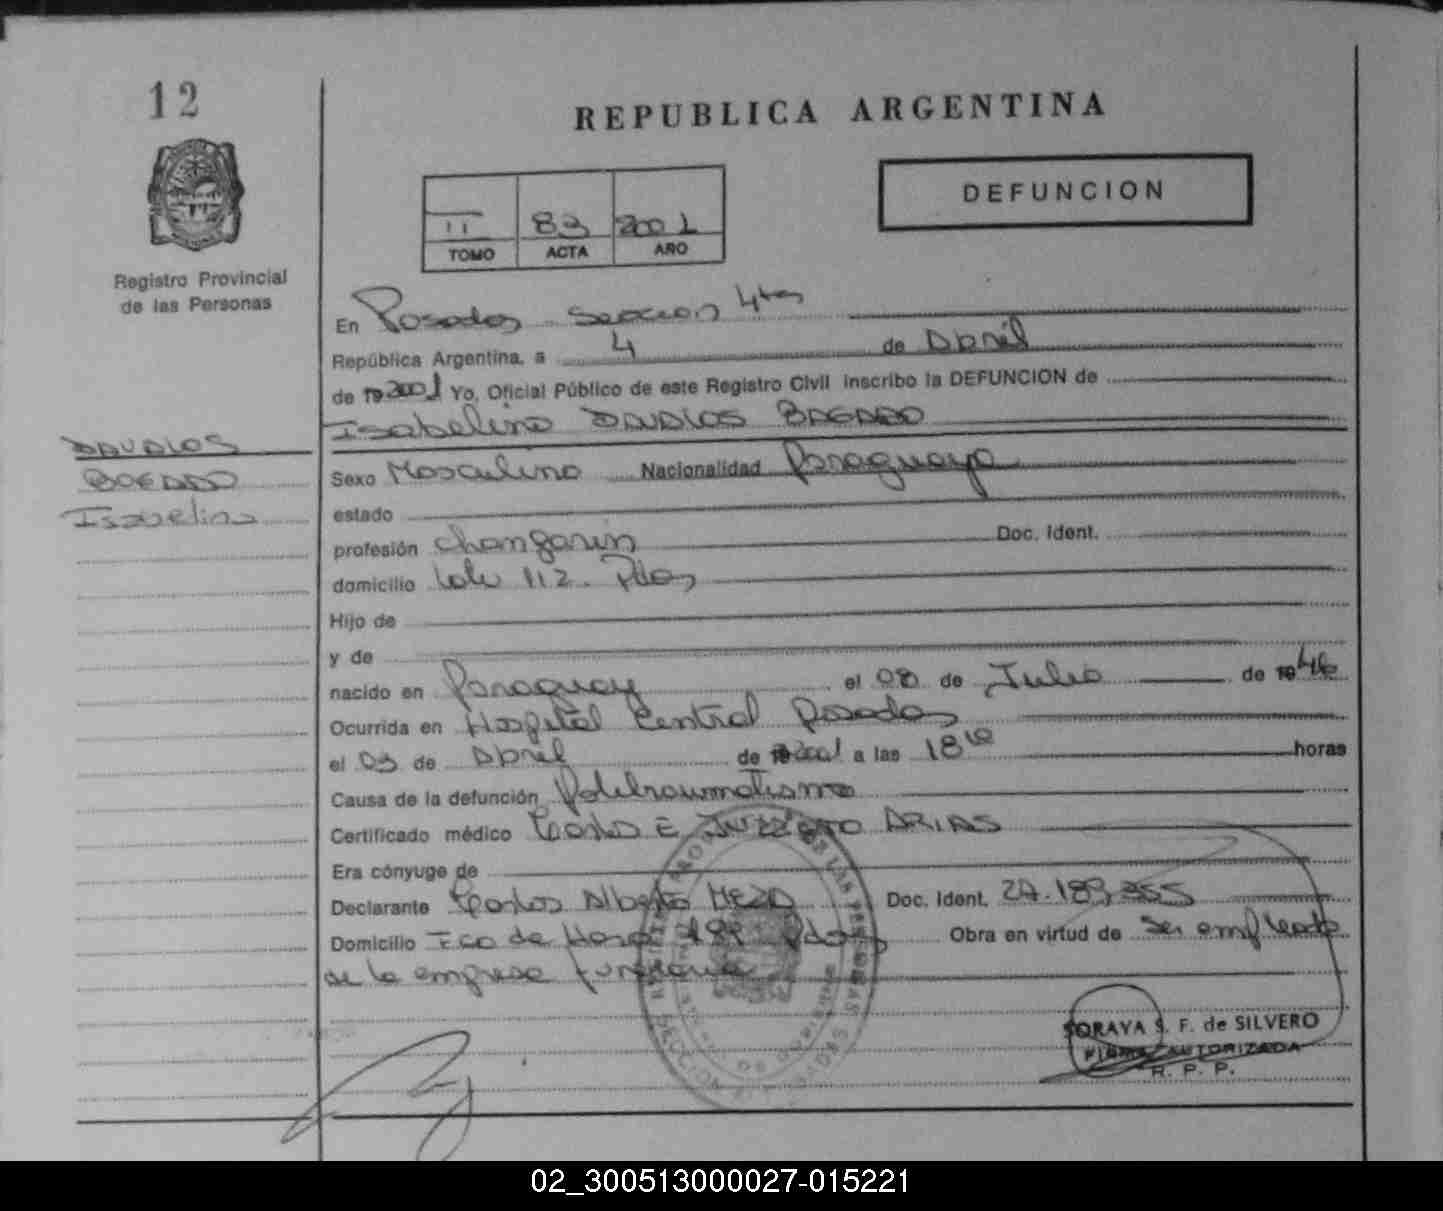 12
REPUBLICA ARGENTINA
DEFUNCION
II 83 2001
TOMO ACTA AÑO
Registro Provincial
de las Personas
En Posadas Seccion 4ta
República Argentina, a 4 de Abril
de 2001 Yo, Oficial Público de este Registro Civil inscribo la DEFUNCION de
Isabelino DAVALOS BOGADO
DAVALOS
BOGADO
Isabelino
Sexo Masculino Nacionalidad Paraguaya
estado
profesión changarin Doc. Ident.
domicilio 112. Pdas
Hijo de
y de
nacido en Paraguay el 08 de Julio de 1946
Ocurrida en Hospital Central Posadas
el 03 de Abril de 2001 a las 18 horas
Causa de la defunción Politraumatismo
Certificado médico Carlos E ARIAS
Era cónyuge de
Declarante Carlos Alberto MEZA Doc. Ident.
Domicilio Fco de Haro Pdas Obra en virtud de Ser empleado
de la empresa funeraria
SORAYA S. F. de SILVERO
FIRMA AUTORIZADA
R. P. P.
02_300513000027-015221